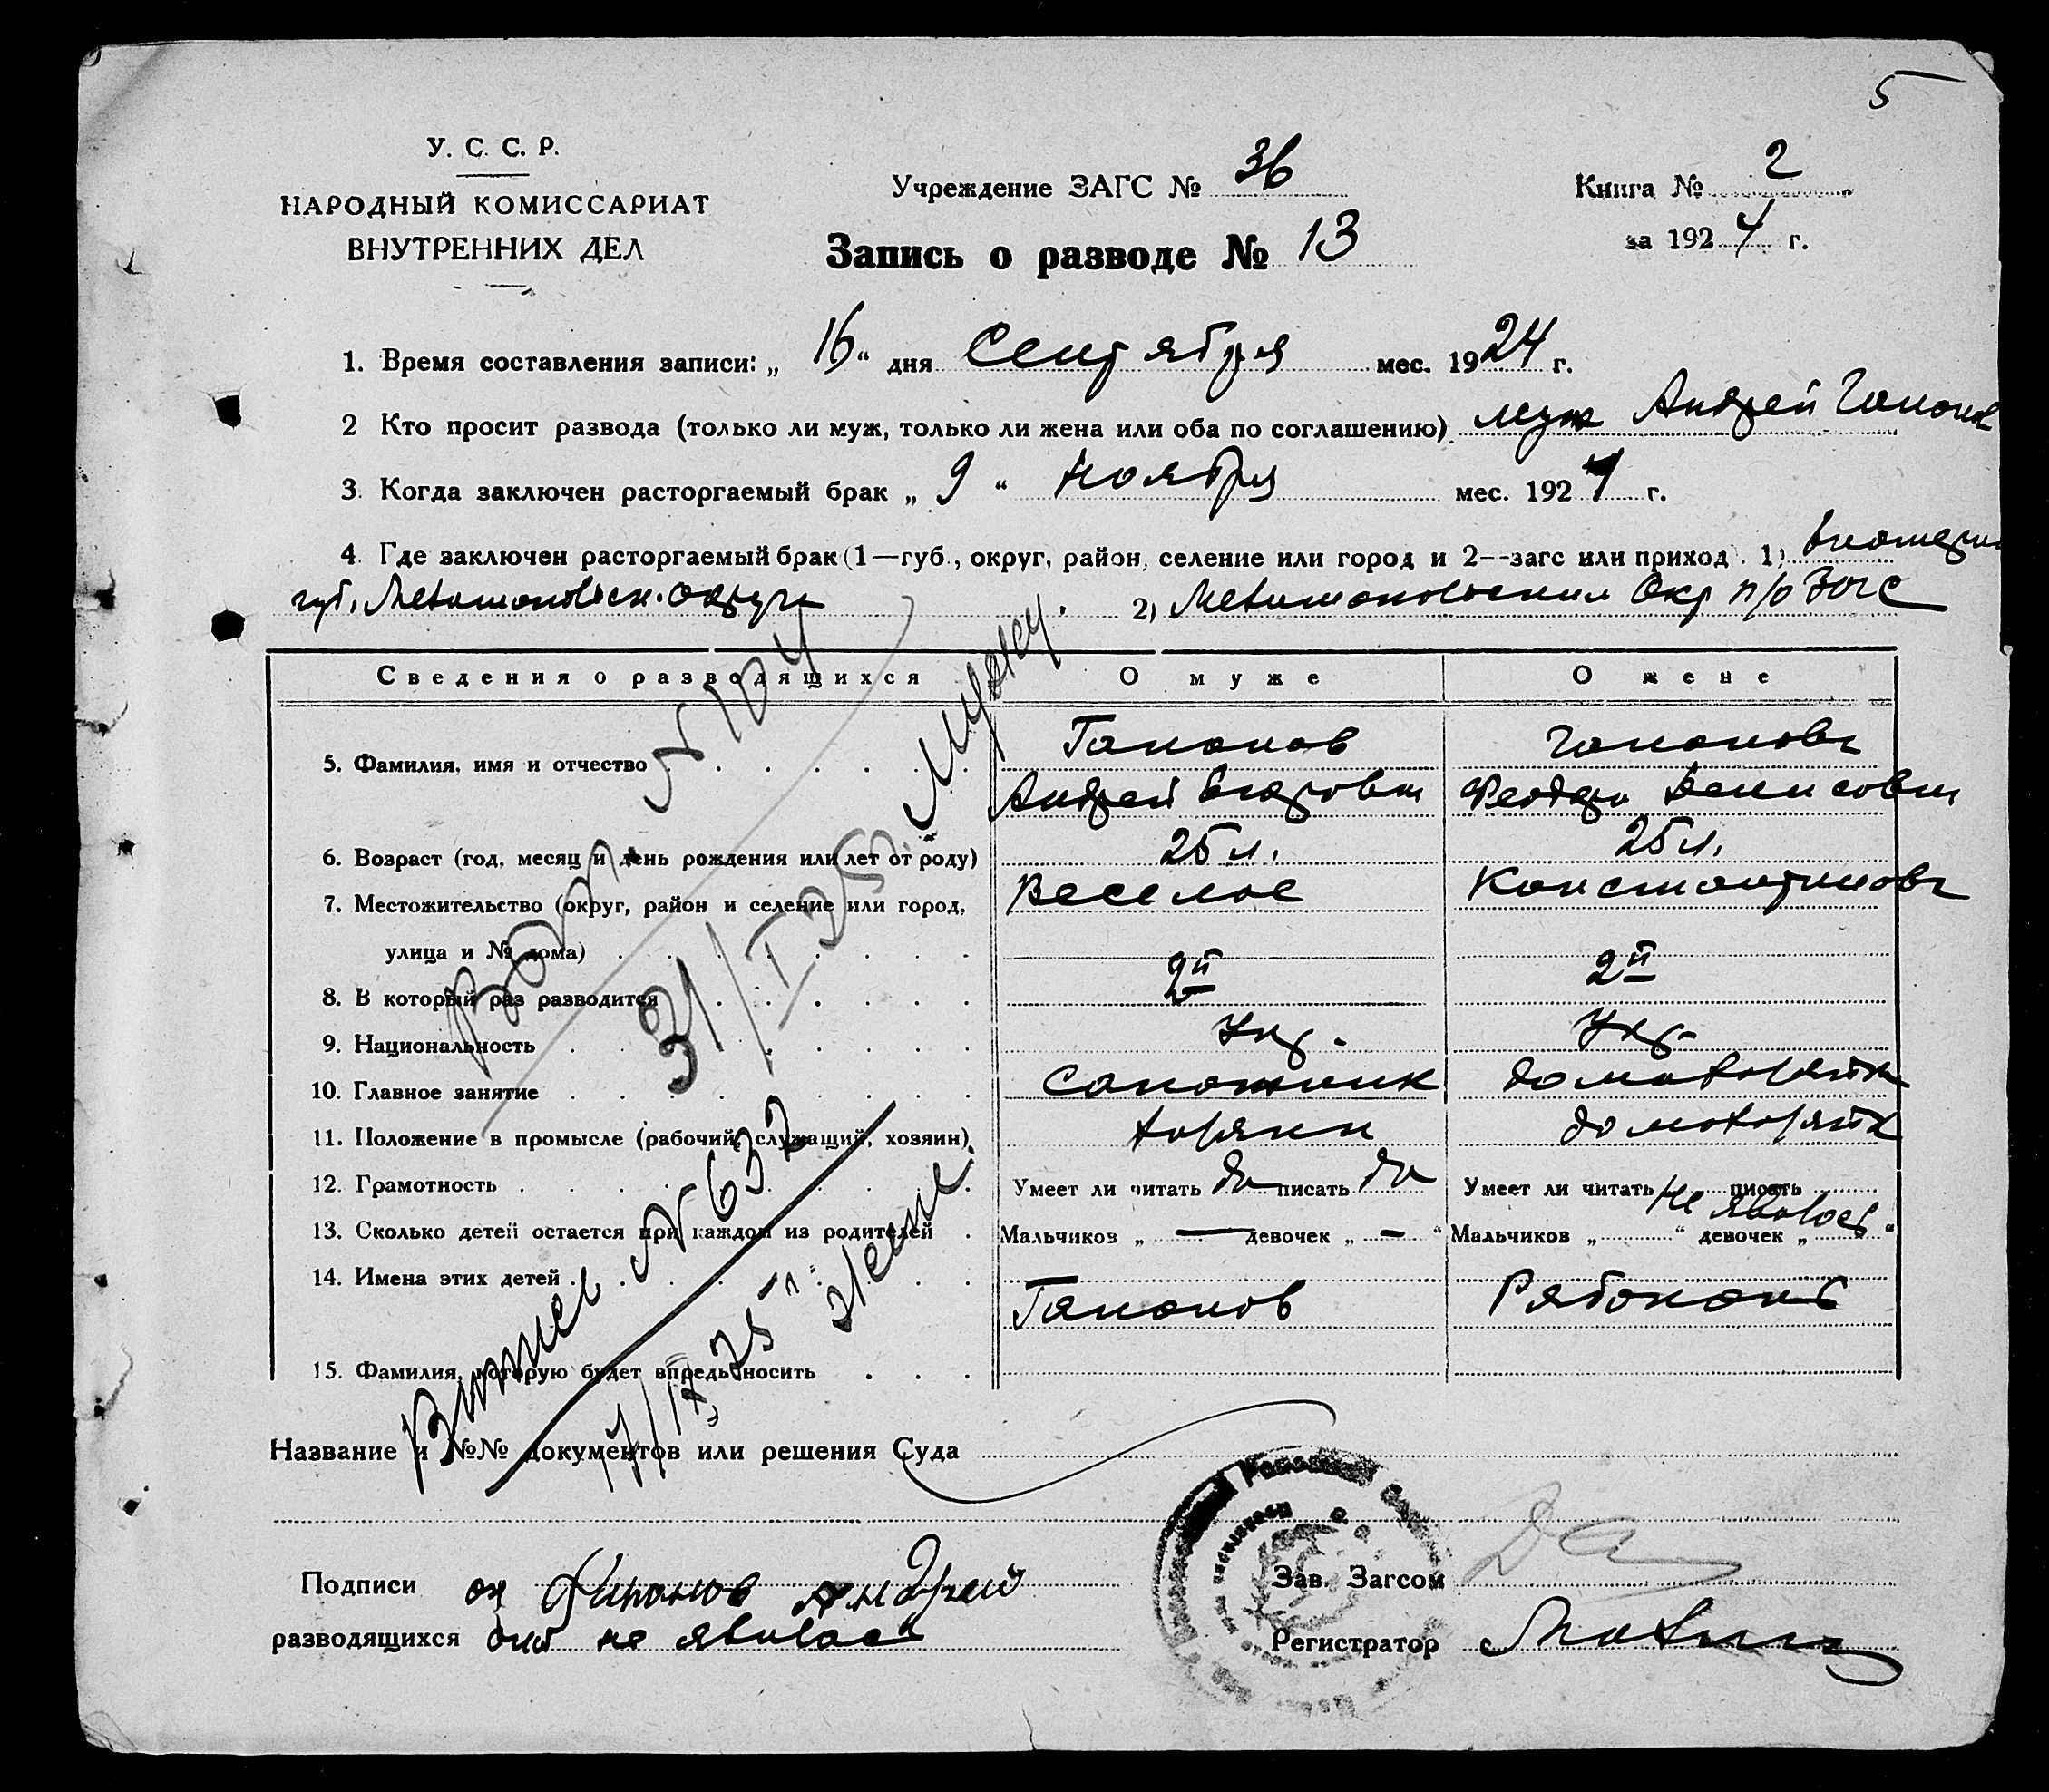 5
У. С. С. Р.
НАРОДНЫЙ КОМИССАРИАТ
ВНУТРЕННИХ ДЕЛ
Учреждение ЗАГС № 36
Книга № 2
за 1924 г.
Запись о разводе № 13
1. Время составления записи: „ 16 “ дня Сентября мес. 1924 г.
2 Кто просит развода (только ли муж, только ли жена или оба по соглашению) муж Андрей Гапонов
3. Когда заключен расторгаемый брак „ 9 “ Ноября мес. 192 г.
4. Где заключен расторгаемый брак (1—губ., округ, район, селение или город и 2--загс или приход). 1)
губ. Мелитопольск. округа 2) Мелитопольским Окр п/о Загс
Сведения о разводящихся О муже О жене
5. Фамилия, имя и отчество Гапонов Гапонова
Андрей Федора Денисовн
6. Возраст (год, месяц и день рождения или лет от роду) 25 л. 25 л.
7. Местожительство (округ, район и селение или город, Веселое Константиновк
улица и № дома)
8. В который раз разводится 2й 2й
9. Национальность Укр. Укр.
10. Главное занятие Сапожник домохозяйка
11. Положение в промысле (рабочий, служащий, хозяин) хозяин домохозяйка
12. Грамотность Умеет ли читать да писать да Умеет ли читать писать
не явилась
13. Сколько детей остается при каждом из родителей Мальчиков „ — девочек „ — “ Мальчиков „ “ девочек „ “
14. Имена этих детей
Гапонов Рябоконь
15. Фамилия, которую будет впредь носить
Вып. № 104
31/I 25 г. Мужу
Выпись № 632
17/IX 25 г. Жене
Название и №№ документов или решения Суда
Подписи он Гапонов Андрей
разводящихся она не явилась
Зав. Загсом
Регистратор